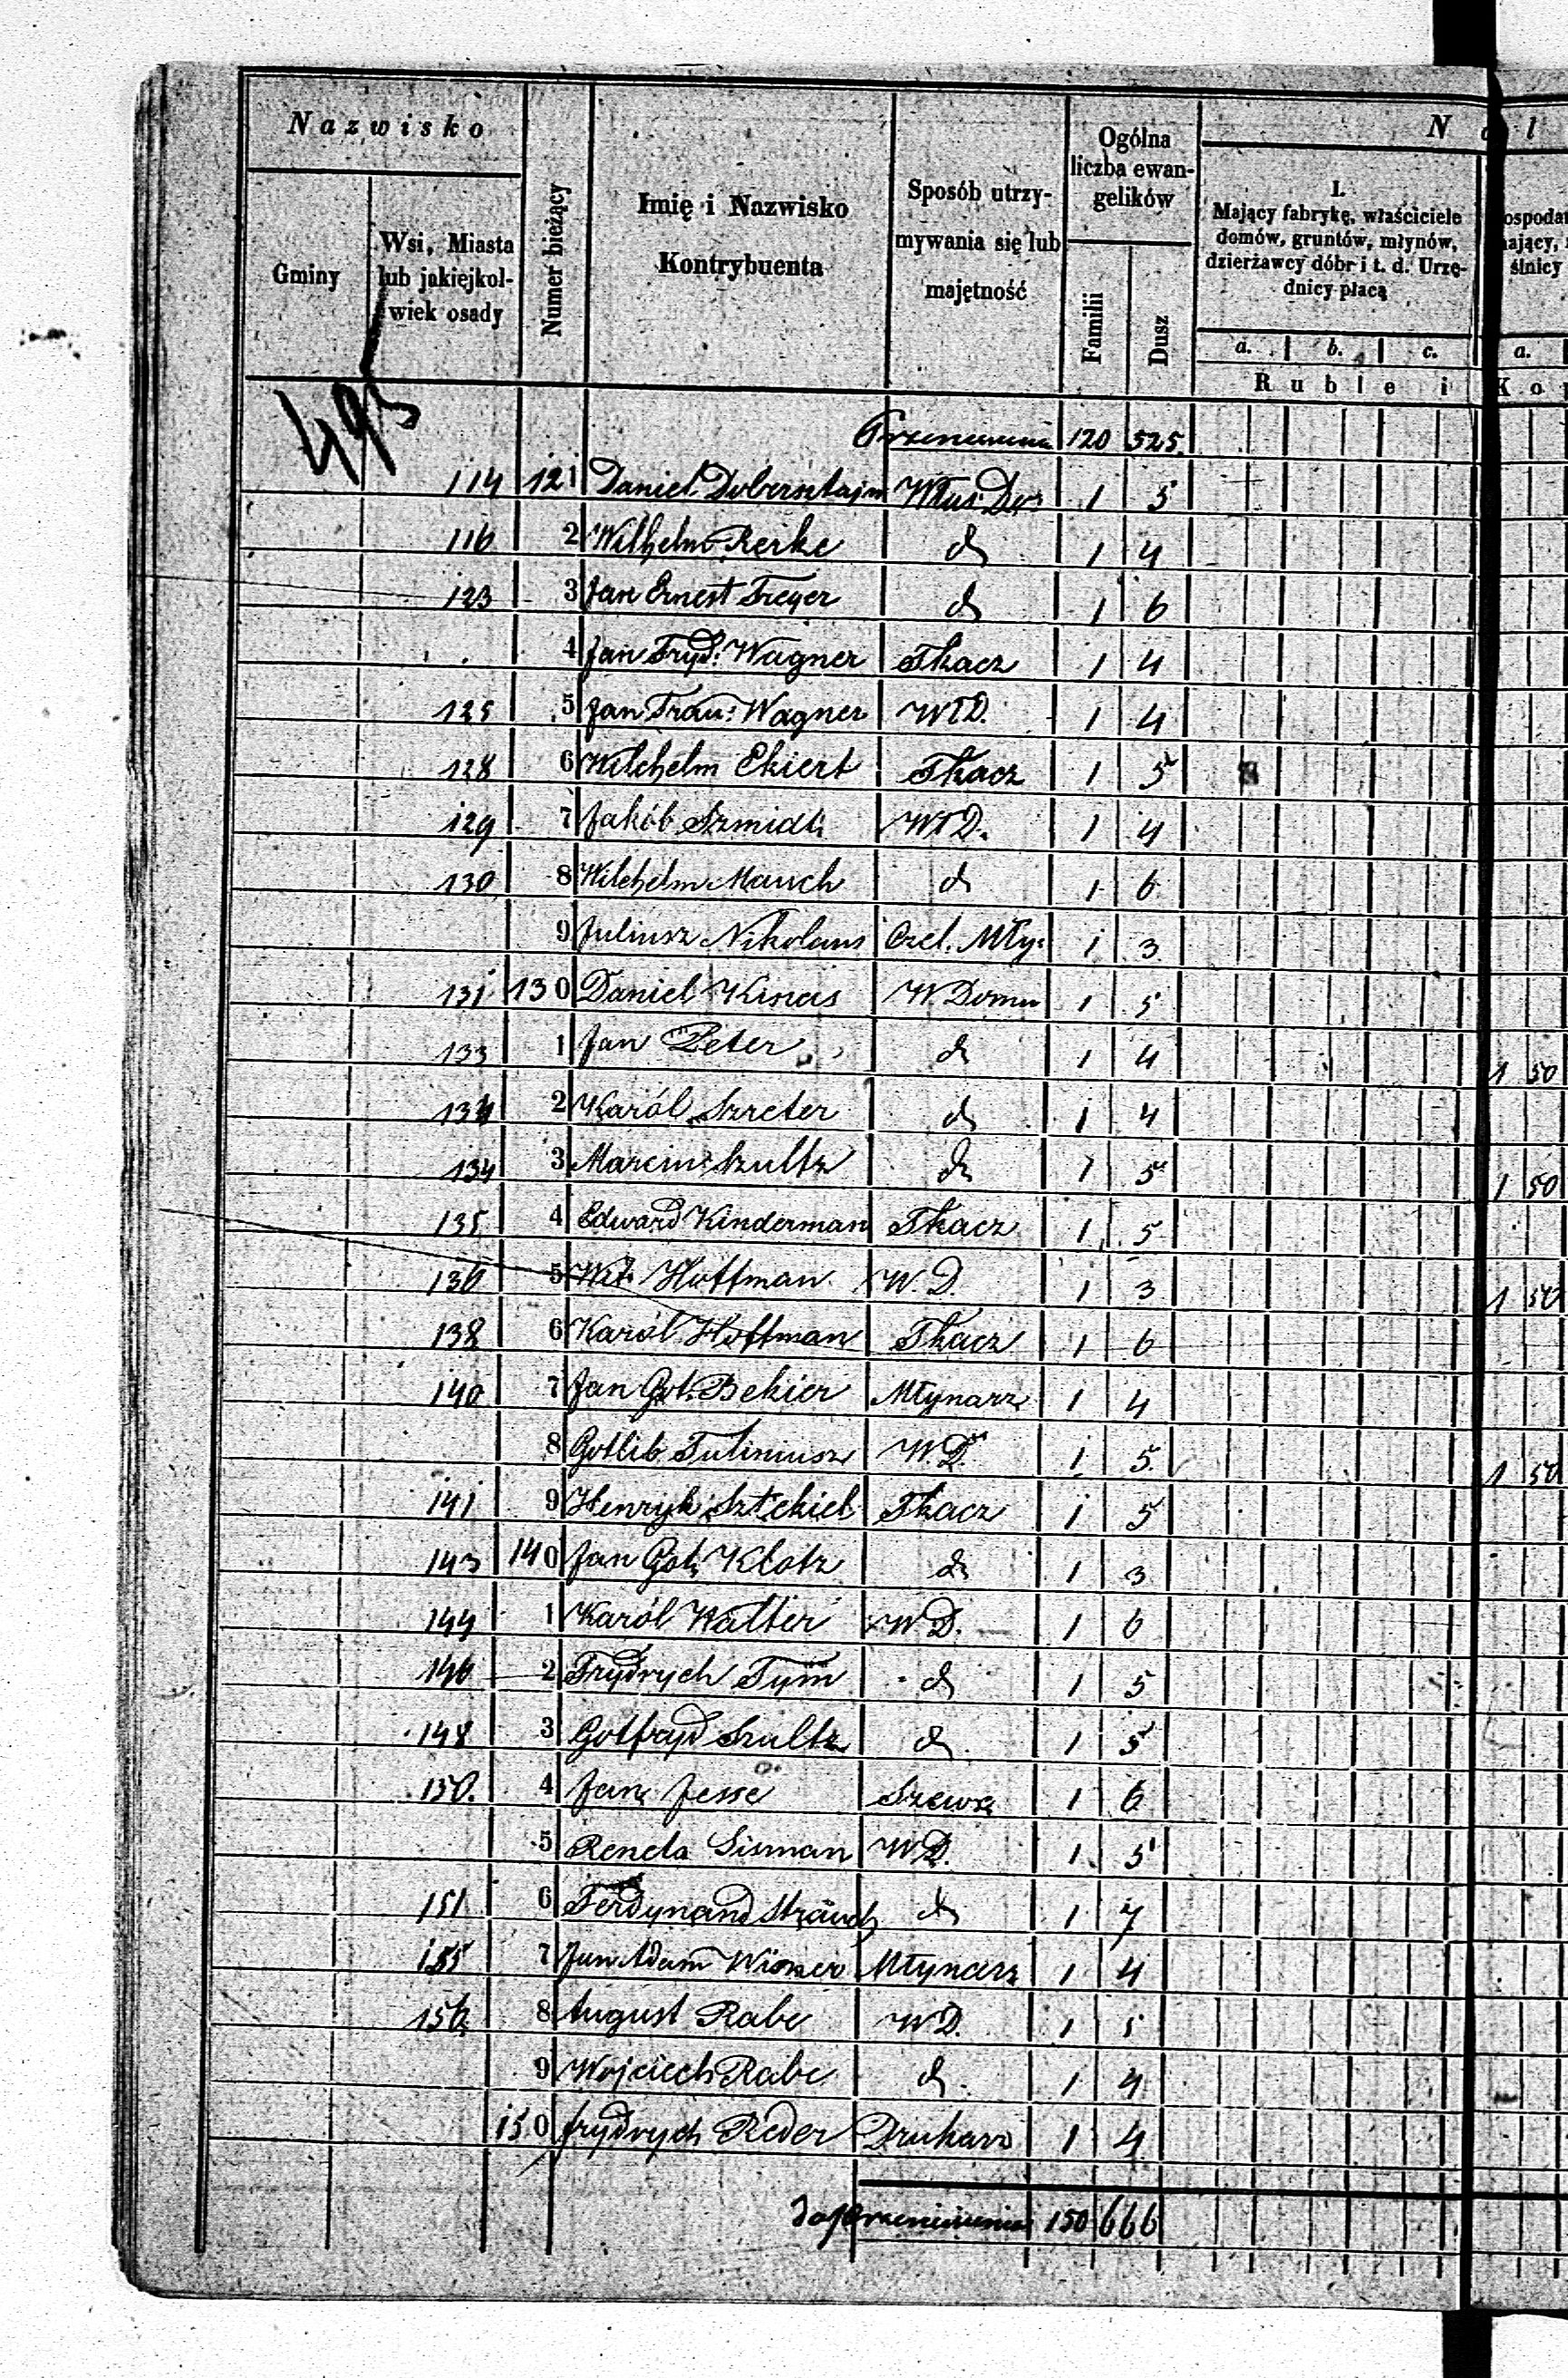 Nazwisko
Gminy
Wsi, Miasta lub jakiejkolwiek osady
Numer bieżący
Imię i Nazwisko Kontrybuenta
Sposób utrzymywania się lub majętność
Ogólna liczba ewangelików
Familii
Dusz
N a l
I.
Mający fabrykę, właściciele domów, gruntów, młynów, dzierżawcy dóbr i t. d. Urzędnicy płacą
a. b. c. a.
Ruble i Ko
ospodar
ający,
ślnicy
493
Przeniesienie 120 525
114 121 Daniel Dobersztajn Włas: Do: 1 5
116 2 Wilhelm Reike d 1 4
123 3 Jan Ernest Freyer d 1 6
4 Jan Fryd: Wagner Tkacz 1 4
125 5 Jan Trau: Wagner WłD. 1 4
128 6 Wilchelm Ekiert Tkacz 1 5
129 7 Jakób Szmidt WłD. 1 4
130 8 Wilchelm Mauch d 1 6
9 Juliusz Nikolaus Czel. Mły: 1 3
131 130 Daniel Kincis W Domu 1 5
133 1 Jan Peter d 1 4 1 50
134 2 Karól Szreter d 1 4
134 3 Marcin Szultz d 1 5 1 50
135 4 Edward Kinderman Tkacz 1 5
136 5 Wil: Hoffman W. D. 1 3 1 50
138 6 Karól Hoffman Tkacz 1 6
140 7 Jan Got: Bekier Młynarz 1 4
8 Gotlib Tuliniusz W. D. 1 5 1 50
141 9 Henryk Sztekiel Tkacz 1 5
143 140 Jan Got: Klotz d 1 3
144 1 Karól Walter W D. 1 6
146 2 Frydrych Tym d 1 5
148 3 Gotfryd Szultz d 1 5
150. 4 Jan Jesse Szewc 1 6
5 Reneta Sisman W D. 1 5
151 6 Ferdynand Strauch d 1 7
155 7 Jan Adam Wisner Młynarz 1 4
156 8 August Rabe W D. 1 5
9 Wojciech Rabe d 1 4
150 frydrych Reder Drukarz 1 4
do przeniesienia 150 666